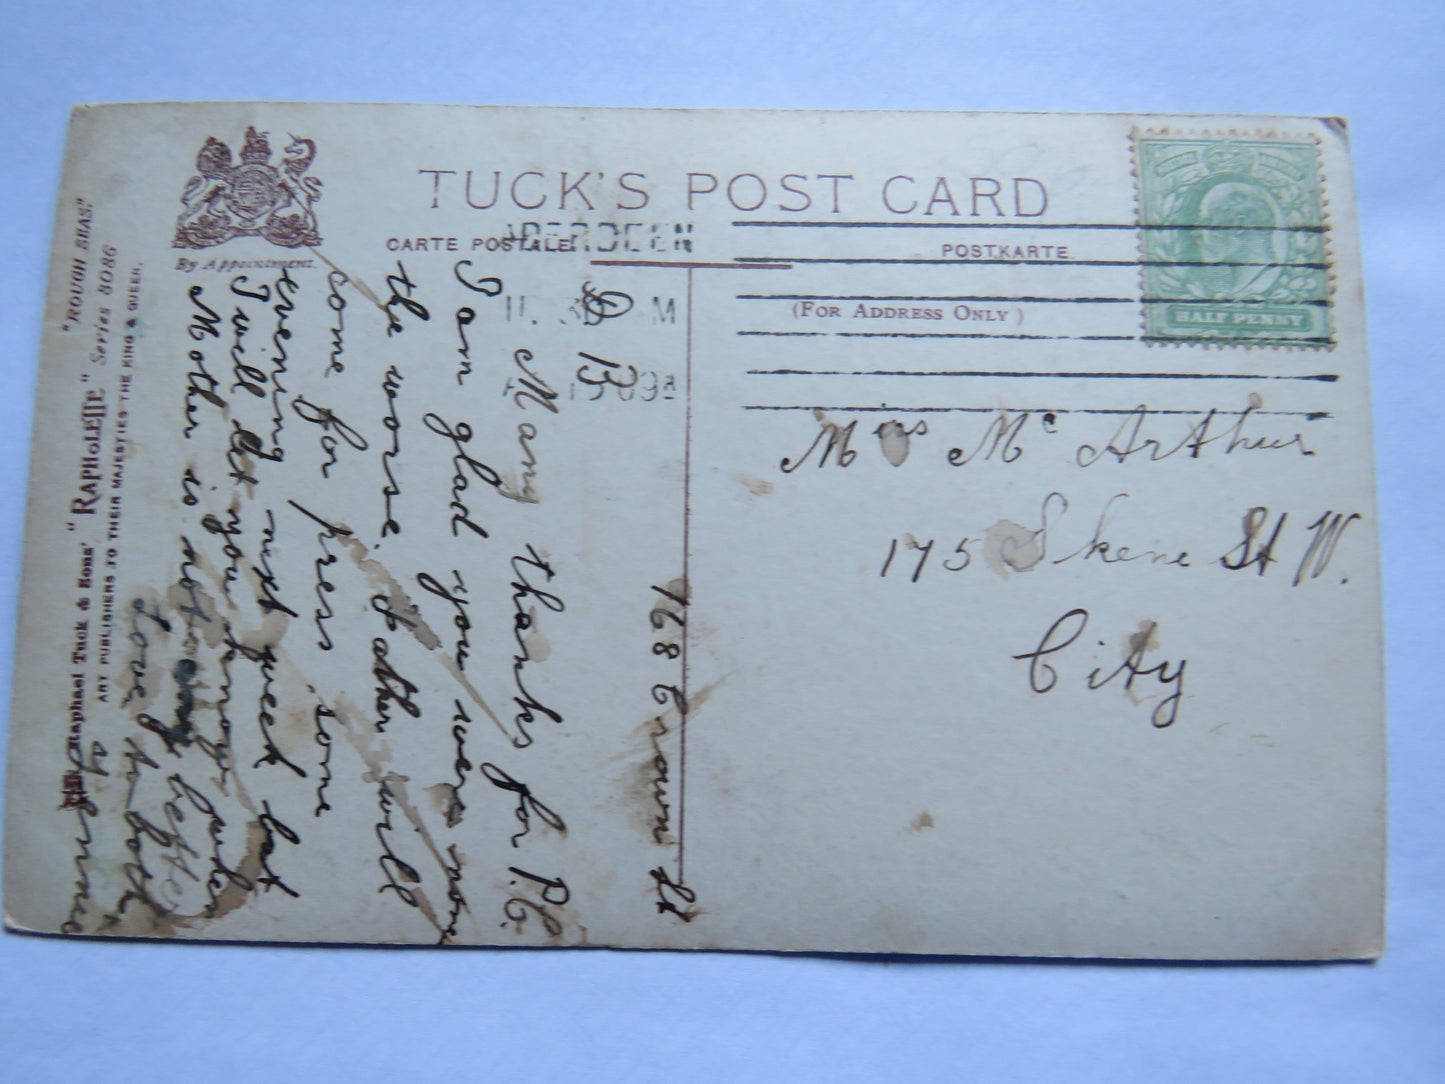 TUCK'S POST CARD
CARTE POSTALE.
POSTKARTE.
(FOR ADDRESS ONLY)
By Appointment.
ABERDEEN
HALF PENNY
Mrs Mc Arthur
175 Skene St W.
City
168 Crown St
Many thanks for P.C.
I am glad you were none
the worse. Father will
come for press some
evening next week but
I will let you know when
Mother is not any better
Love to both
"ROUGH SEAS."
Raphael Tuck & Sons' "RAPHOLETTE" Series 8086
ART PUBLISHERS TO THEIR MAJESTIES THE KING & QUEEN.